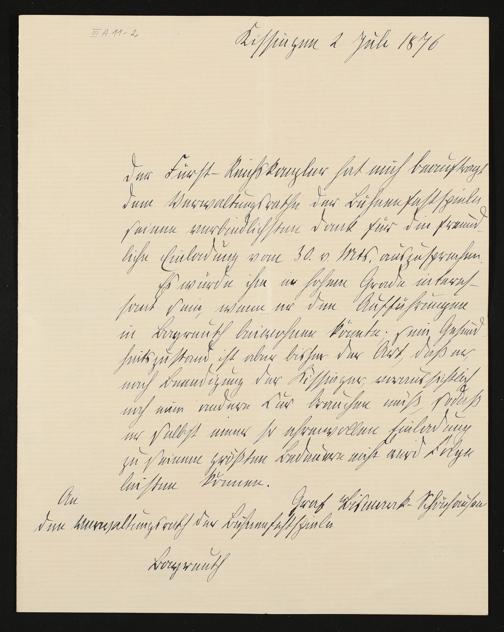 III A 11-2
Kissingen 2 Juli 1876
Der Fürst-Reichskanzler hat mich beauftragt
dem Verwaltungsrathe der Bühnenfestspiele
seinen verbindlichsten Dank für die freund-
liche Einladung vom 30. v. Mts. auszusprechen.
Es würde ihn in hohem Grade interes-
sant sein, wenn er den Aufführungen
in Bayreuth beiwohnen könnte. Sein Gesund
heitszustand ist aber bisher der Art, daß er
nach Beendigung der Kissinger voraussichtlich
noch eine andere Kur brauchen muß, sodaß
er selbst einer so ehrenvollen Einladung
zu seinem größten Bedauern nicht wird Folge
leisten können.
Graf Bismarck-Schönhausen
An
den Verwaltungsrath der Bühnenfestspiele
Bayreuth